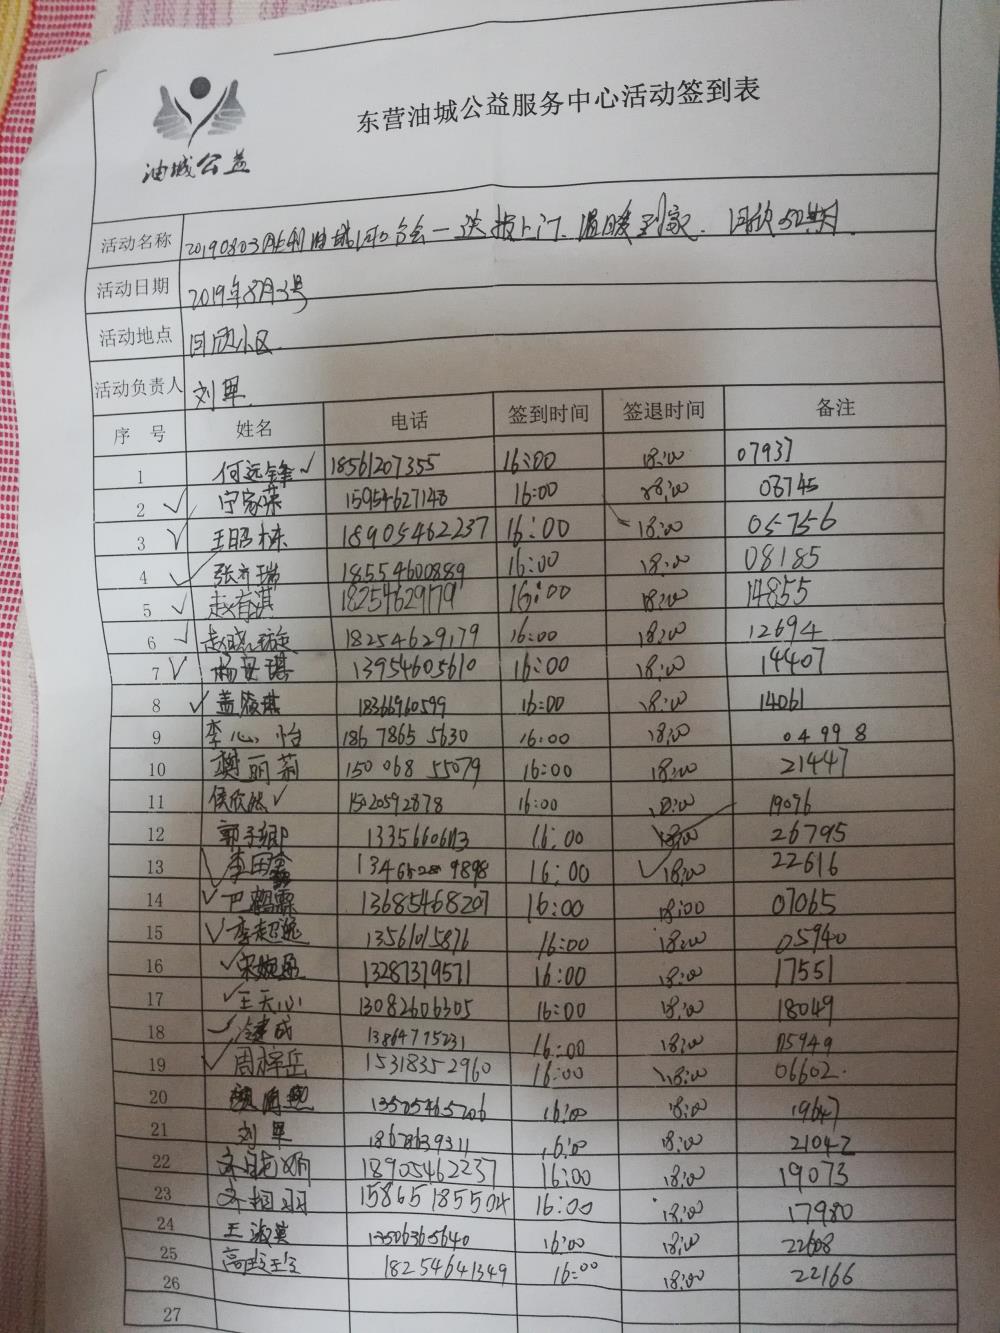 东营油城公益服务中心活动签到表
油城公益
活动名称 20190803胜利油城 分会一送报上门、温暖到家.
活动日期 2019年8月3号
活动地点 小区
活动负责人 刘军
序号 姓名 电话 签到时间 签退时间 备注
1 何远锋 18561207355 16:00 18:00 07937
2 宁家荣 15954627148 16:00 18:00 03745
3 王昭林 18905462237 16:00 18:00 05756
4 张 瑞 18554600889 16:00 18:00 08185
5 赵 淇 18254629179 16:00 18:00 14855
6 赵晓璇 18254629179 16:00 18:00 12694
7 杨 琪 13954605610 16:00 18:00 14407
8 盖 18366960599 16:00 18:00 14061
9 李心怡 186 7865 5630 16:00 18:00 04998
10 樊丽莉 150 068 55079 16:00 18:00 21447
11 侯欣然 15020592878 16:00 18:00 19096
12 郭子卿 16:00 18:00 26795
13 李田 16:00 18:00 22616
14 13685468207 16:00 18:00 07065
15 李超逸 13561015876 16:00 18:00 05940
16 宋 13287379571 16:00 18:00 17551
17 王天心 13082606305 16:00 18:00 18049
18 建成 13864775231 16:00 18:00 05949
19 周梓岳 15318352960 16:00 18:00 06602.
20 13505465206 16:00 18:00 19647
21 刘军 16:00 18:00 21042
22 18905462237 16:00 18:00 19073
23 15865185504 16:00 18:00 17980
24 王淑英 16:00 18:00 22608
25 高 18254641349 16:00 18:00 22166
26
27